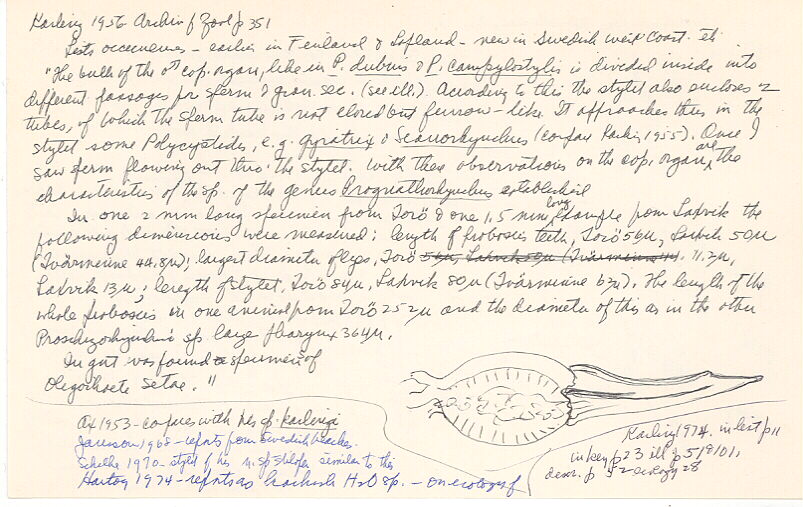 Karling 1956 Archiv f Zool p 351
Lists occurrences - earlier in Finland & - new in Swedish west coast.
"The bulb of the ♂ cop. organ, like in P. dubius & P. campylostylis is divided inside into
different passages for sperm & gran. sec. (see ill.). According to this the stylet also encloses 2
tubes, of which the sperm tube is not closed but furrow-like. It approaches thus in the
stylet some Polycystids, e.g. Gyratrix & Scanorhynchus (confare Karling 1955). Once I
saw sperm flowing out thro. the stylet. With these observations on the cop. organ are the
characteristics of the sp. of the genus Prognathorhynchus established
In one 2 mm long specimen from Torö & one 1,5 mm long example from Lahvik the
following dimensions were measured; length of proboscis teeth, Torö 56µ, Lahvik 50µ
(Tvärminne 44.8µ); largest diameter of , Torö 11.2µ,
Lahvik 13µ; length of stylet, Torö 84µ, Lahvik 80µ (Tvärminne 67µ). The length of the
whole proboscis in one animal from Torö 252µ and the diameter of this as in the other
sp. large pharynx 364µ.
In gut was found specimen of
Oligochaete setae."
Ax 1953 - compares with his sp. karlingi
Jansson 1968 - reports from Swedish beaches.
Schilke 1970 - stylet of his n. sp. similar to this
Hartog 1974 - reports as brackish H2O sp. - on ecology of
Karling 1974. in list p 11
in key p 23 ill p 51 8, 10, 11,
descr. p 52 ecology 28